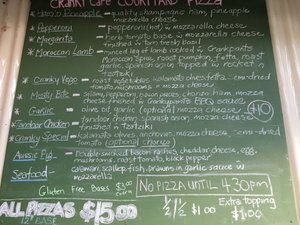 CRANKY CAFE COURTYARD PIZZA
*Ham & Pineapple - quality champagne ham, pineapple
mozzarella cheese
*Pepperoni - pepperoni (hot) w mozzarella cheese
*Margarita - herb tomato base w mozzarella cheese
finished w torn fresh basil
*Moroccan Lamb - minced lamb cooked w Crankypants
Moroccan spice, roast pumpkin, fetta, roast
garlic, spanish onion topped w rocket n
tzatziki
Cranky Vego - roast vegetables, kalamata olives, fetta, semi-dried
tomatoes mozzarella cheese
Meaty Bite - salami, pepperoni, bacon pieces, chorizo, ham, mozza
cheese, finished w Crankypants BBQ sauce
* Garlic - olive oil, garlic (optional) mozza cheese $10
*Tandoori Chicken - tandoori chicken, spanish onion, mozza cheese
finished w tzatziki
*Cranky Special - kalamata olives, anchovies, mozza cheese, semi-dried
tomato (optional chorizo)
Aussie Pig - double smoked bacon rashers, cheddar cheese, egg,
mushrooms, roast tomato, black pepper
Seafood - calamari, scallop, fish, prawns in garlic sauce w
mozzarella
Gluten Free Bases $3.00 extra
NO PIZZA UNTIL 4.30pm
ALL PIZZAS $15.00
12" BASE
1/2 1/2 $1.00
Extra topping
$1.00